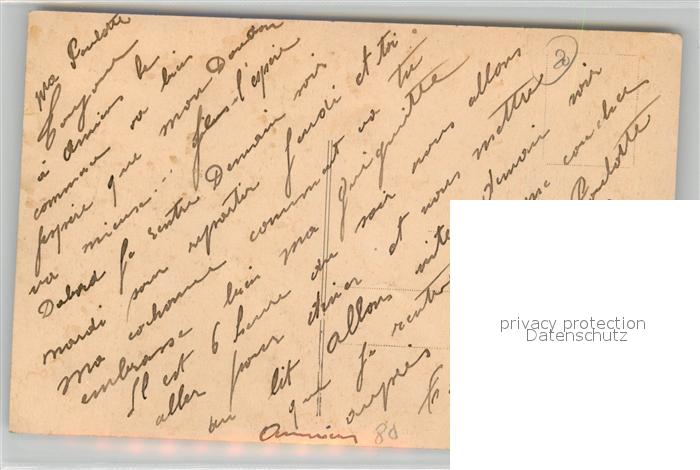 ma Poulotte
Toujours
à Amiens le
commerce va bien
J'espère que mon Doudou
va mieux... Je l'espère
Dabord je rentre Demain soir
mardi pour repartir Jeudi et toi
ma cochonne comment va tu
embrasse bien ma Guiguitte
Il est 6 heure du soir nous allons
aller pour diner et nous mettre
au lit allons vite demain soir
que je rentre coucher
auprès Poulotte
Amiens 80
20
privacy protection
Datenschutz